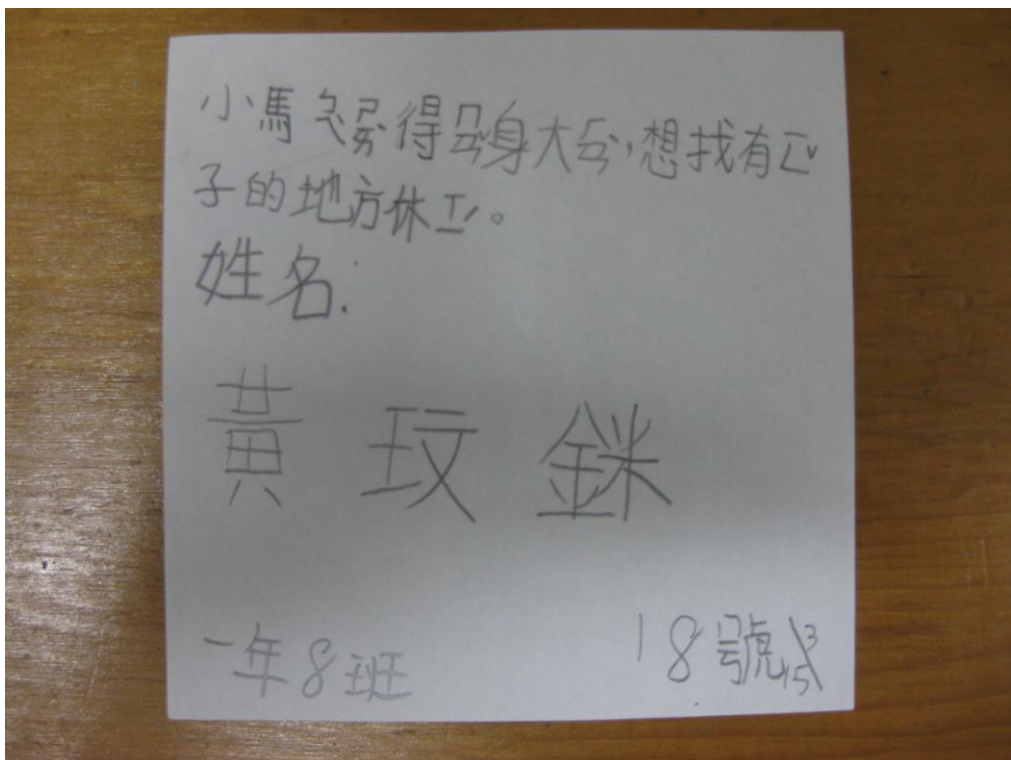 小馬得ㄇㄢˇ身大ㄏㄢˋ,想找有ㄧˇ
子的地方休ㄒㄧˊ。
姓名:
黃玟銤
一年8班 18號